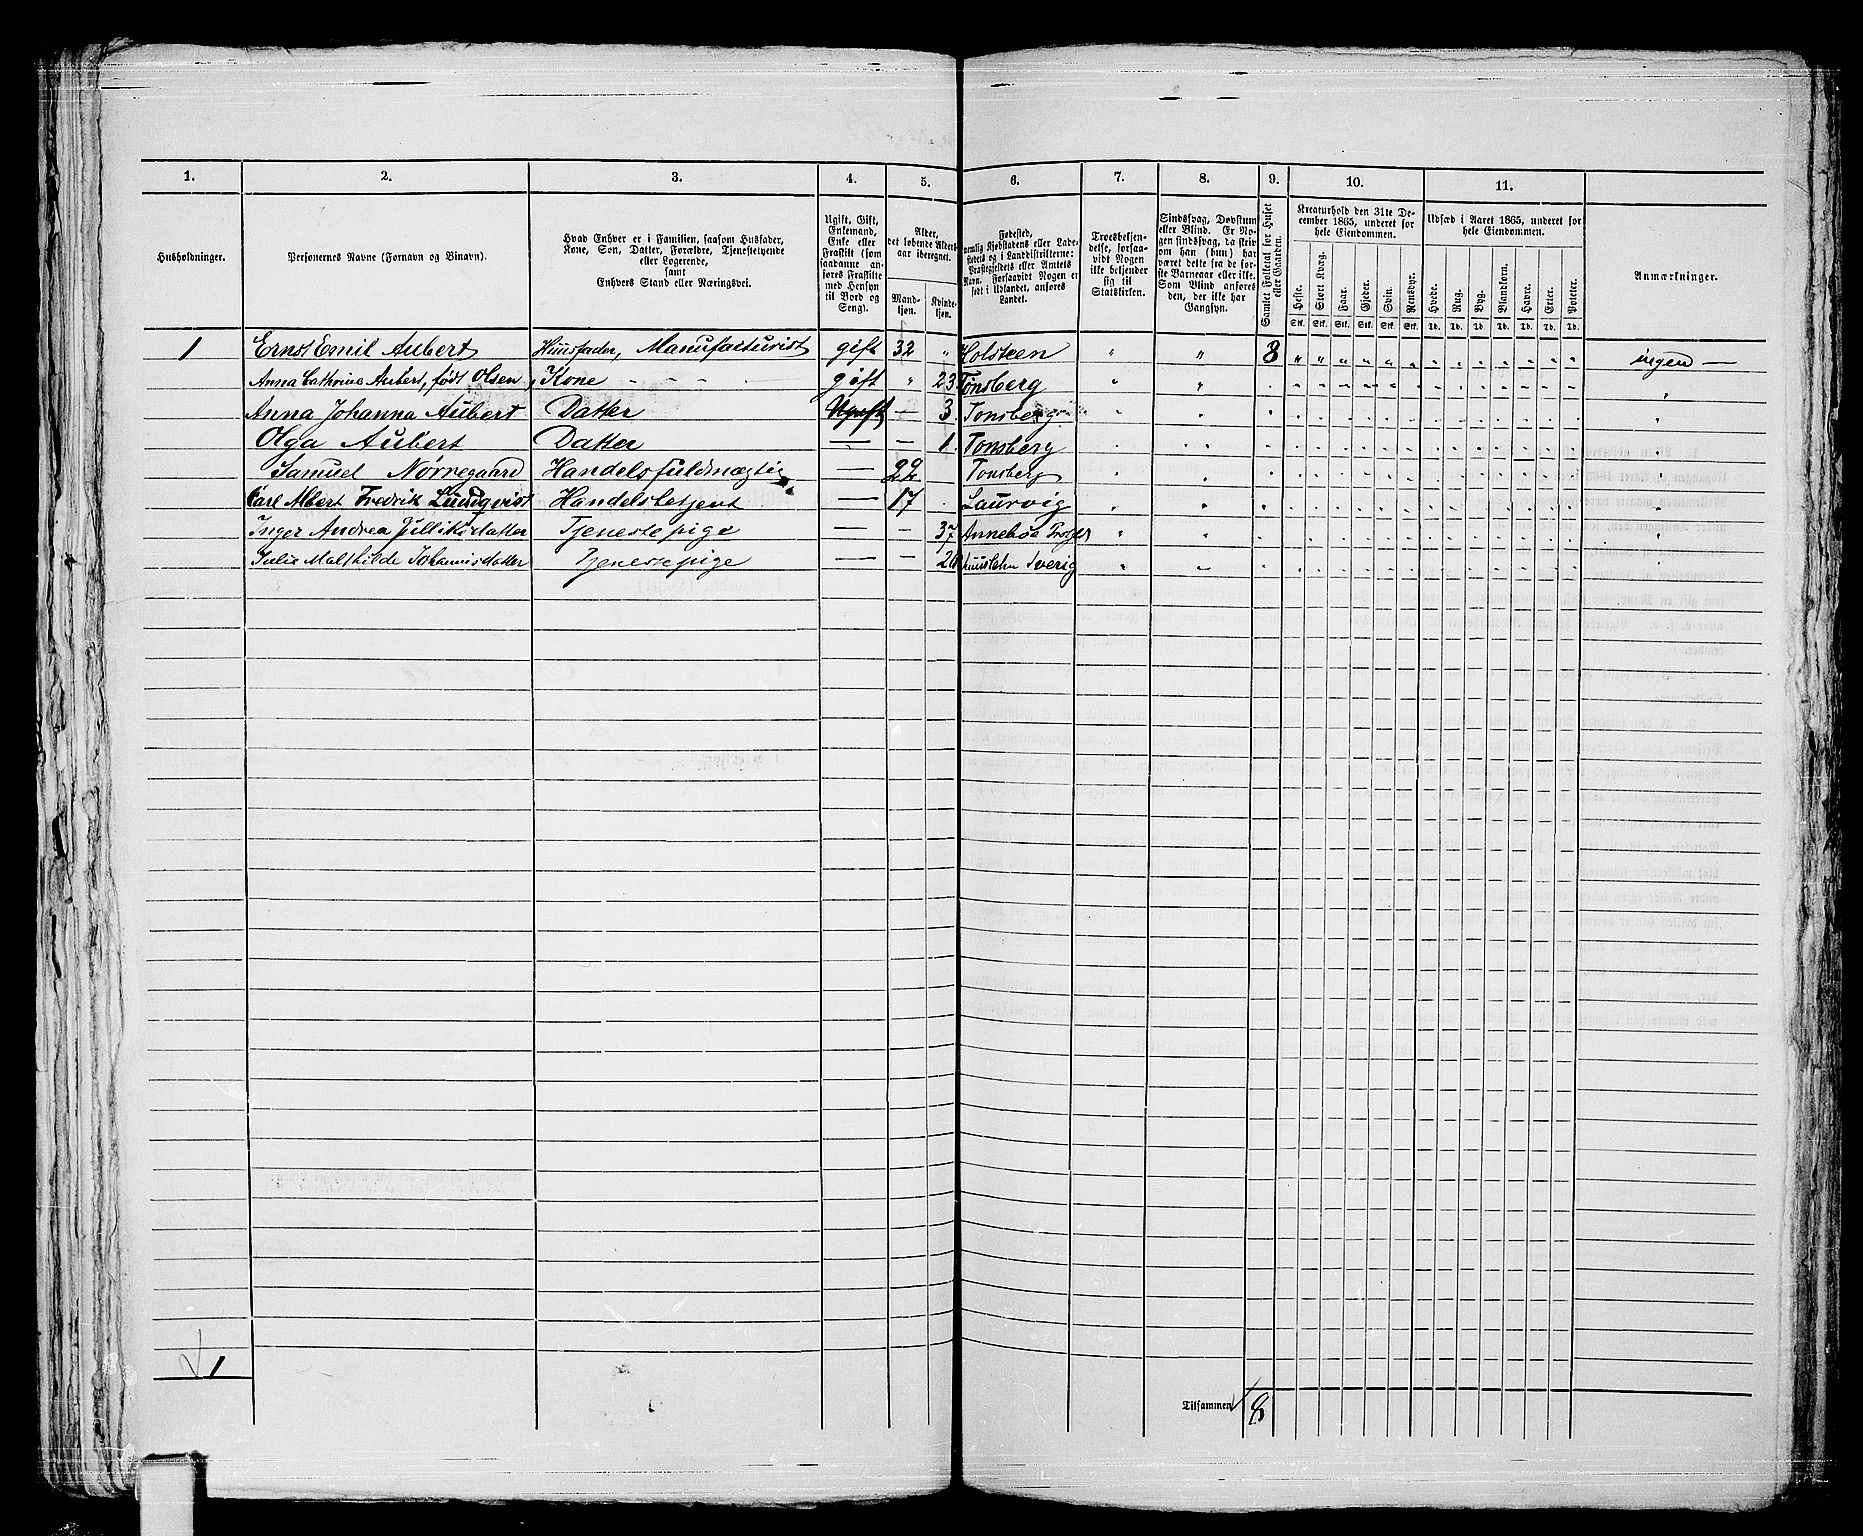 1. 2. 3. 4. 5. 6. 7. 8. 9. 10. 11.
Husholdninger.
Personernes Navne (Fornavn og Binavn).
Hvad Enhver er i Familien, saasom Husfader,
Kone, Søn, Datter, Forældre, Tjenestetyende
eller Logerende,
samt
Enhvers Stand eller Næringsvei.
Ugift, Gift,
Enkemand,
Enke eller
Fraskilt (som
saadanne an-
føres Fraskilte
med Hensyn
til Bord og
Seng).
Alder,
det løbende Alders-
aar iberegnet.
Mand-
kjøn.
Kvinde-
kjøn.
Fødested,
nemlig Kjøbstadens eller Lade-
stedets og i Landdistrikterne:
Præstegjeldets eller Amtets
Navn. Forsaavidt Nogen er
født i Udlandet, anføres
Landet.
Troesbekjen-
delse, forsaa-
vidt Nogen
ikke bekjender
sig til
Statskirken.
Sindssvag, Døvstum
eller Blind. Er No-
gen sindssvag, da skriv
om han (hun) har
været dette fra de før-
ste Barneaar eller ikke.
Som Blind anføres
den, der ikke har
Gangsyn.
Samlet Folketal for Huset
eller Gaarden.
Kreaturhold den 31te De-
cember 1865, underet for
hele Eiendommen.
Heste. Stort Kvæg. Faar. Gjeder. Svin. Rensdyr.
Stk. Stk. Stk. Stk. Stk. Stk.
Udsæd i Aaret 1865, underet for
hele Eiendommen.
Hvede. Rug. Byg. Blandkorn. Havre. Erter. Poteter.
Td. Td. Td. Td. Td. Td. Td.
Anmærkninger.
1 Ernst Emil Aubert Huusfader, Manufacturist gift 32 " Holsteen " " 8 " " " " " " " " " " " " " ingen —
Anna Cathrine Aubert, født Olsen, Kone - - - - gift " 23. Tønsberg
Anna Johanna Aubert Datter Ugift — 3. Tonsberg
Olga Aubert Datter — — 1. Tonsberg
Samuel Nørregaard Handelsfuldmægtig — 22 Tonsberg
Carl Albert Fredrik Lundqvist Handelsbetjent — 17 . Laurvig
Inger Andrea Tjenestepige — — 37
Julie Mathilde Johannisdatter Tjenestepige — — Sverig
1
Tilsammen 8